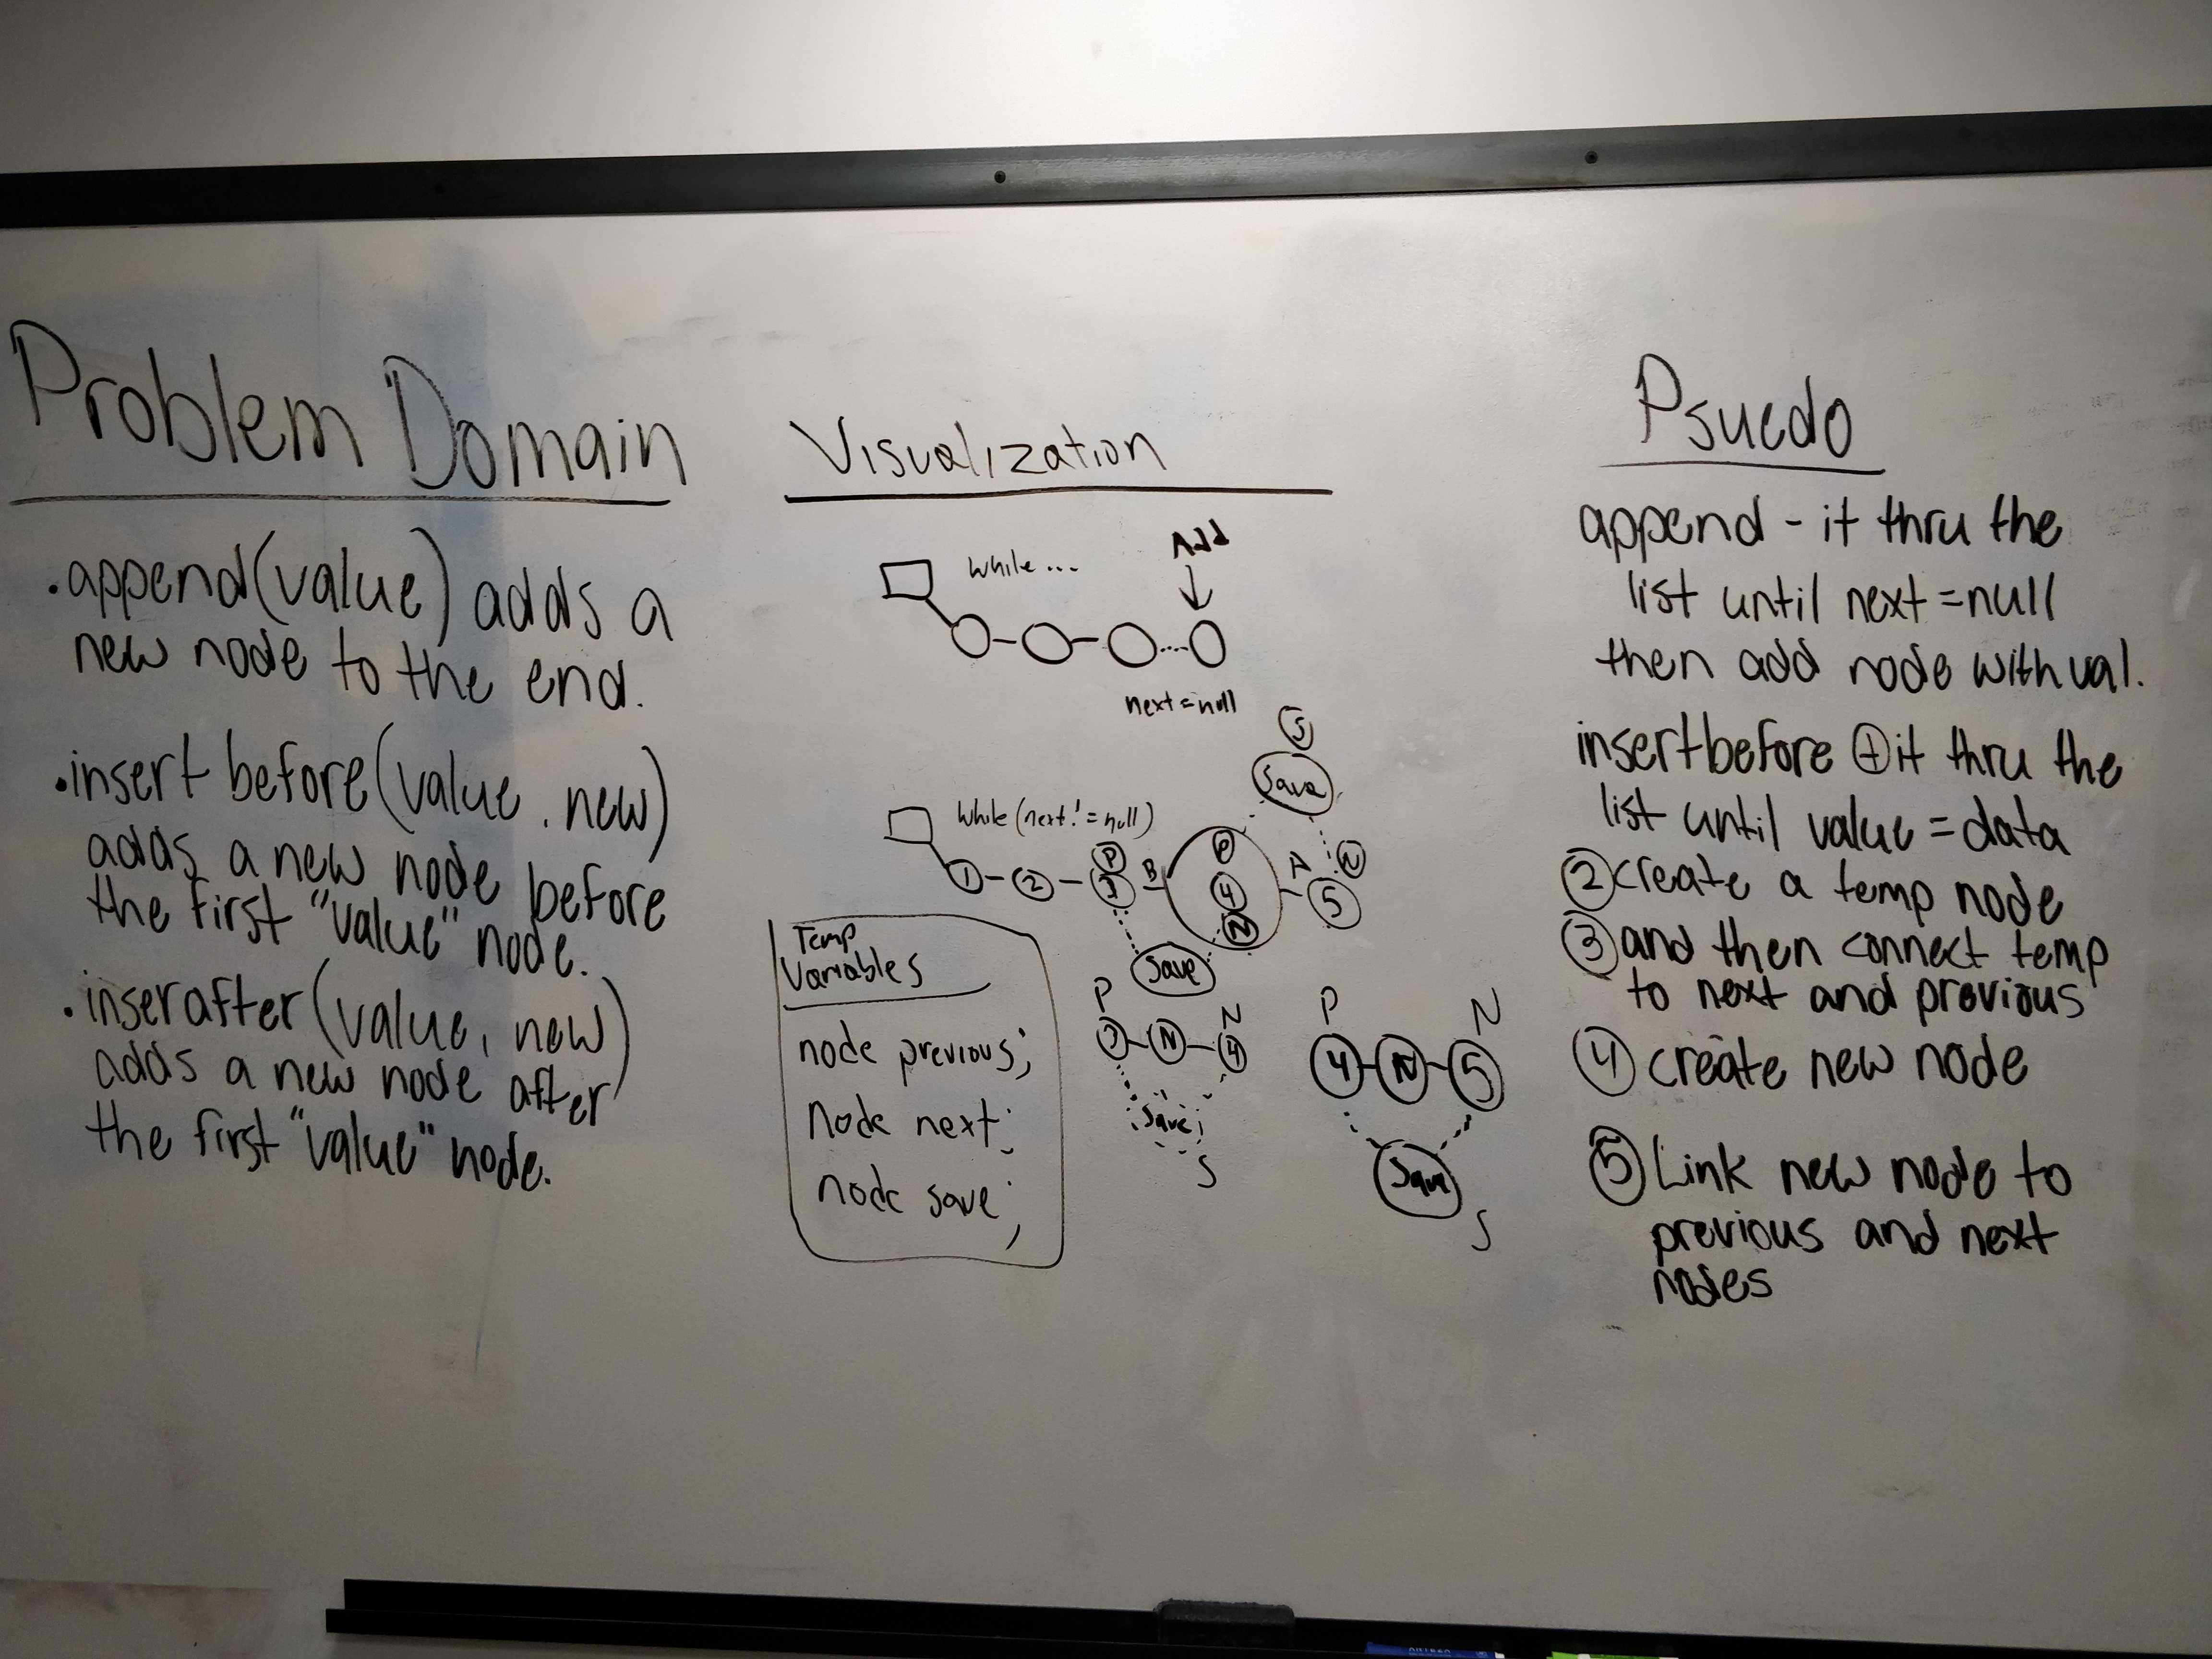 Problem Domain
.append(value) adds a
new node to the end.
.insert before(value, new)
adds a new node before
the first "value" node.
.inserafter(value, new)
adds a new node after
the first "value" node.
Visualization
while...
Add
next=null
S
Save
while(next!=null)
1 2 P 3 B P 4 N A N 5
Save
Temp
Variables
node previous;
node next;
node save;
P N
3 N 4
Save
S
P N
4 N 5
Save
S
Psuedo
append - it thru the
list until next=null
then add node with val.
insertbefore ① it thru the
list until value=data
② create a temp node
③ and then connect temp
to next and previous
④ create new node
⑤ Link new node to
previous and next
nodes